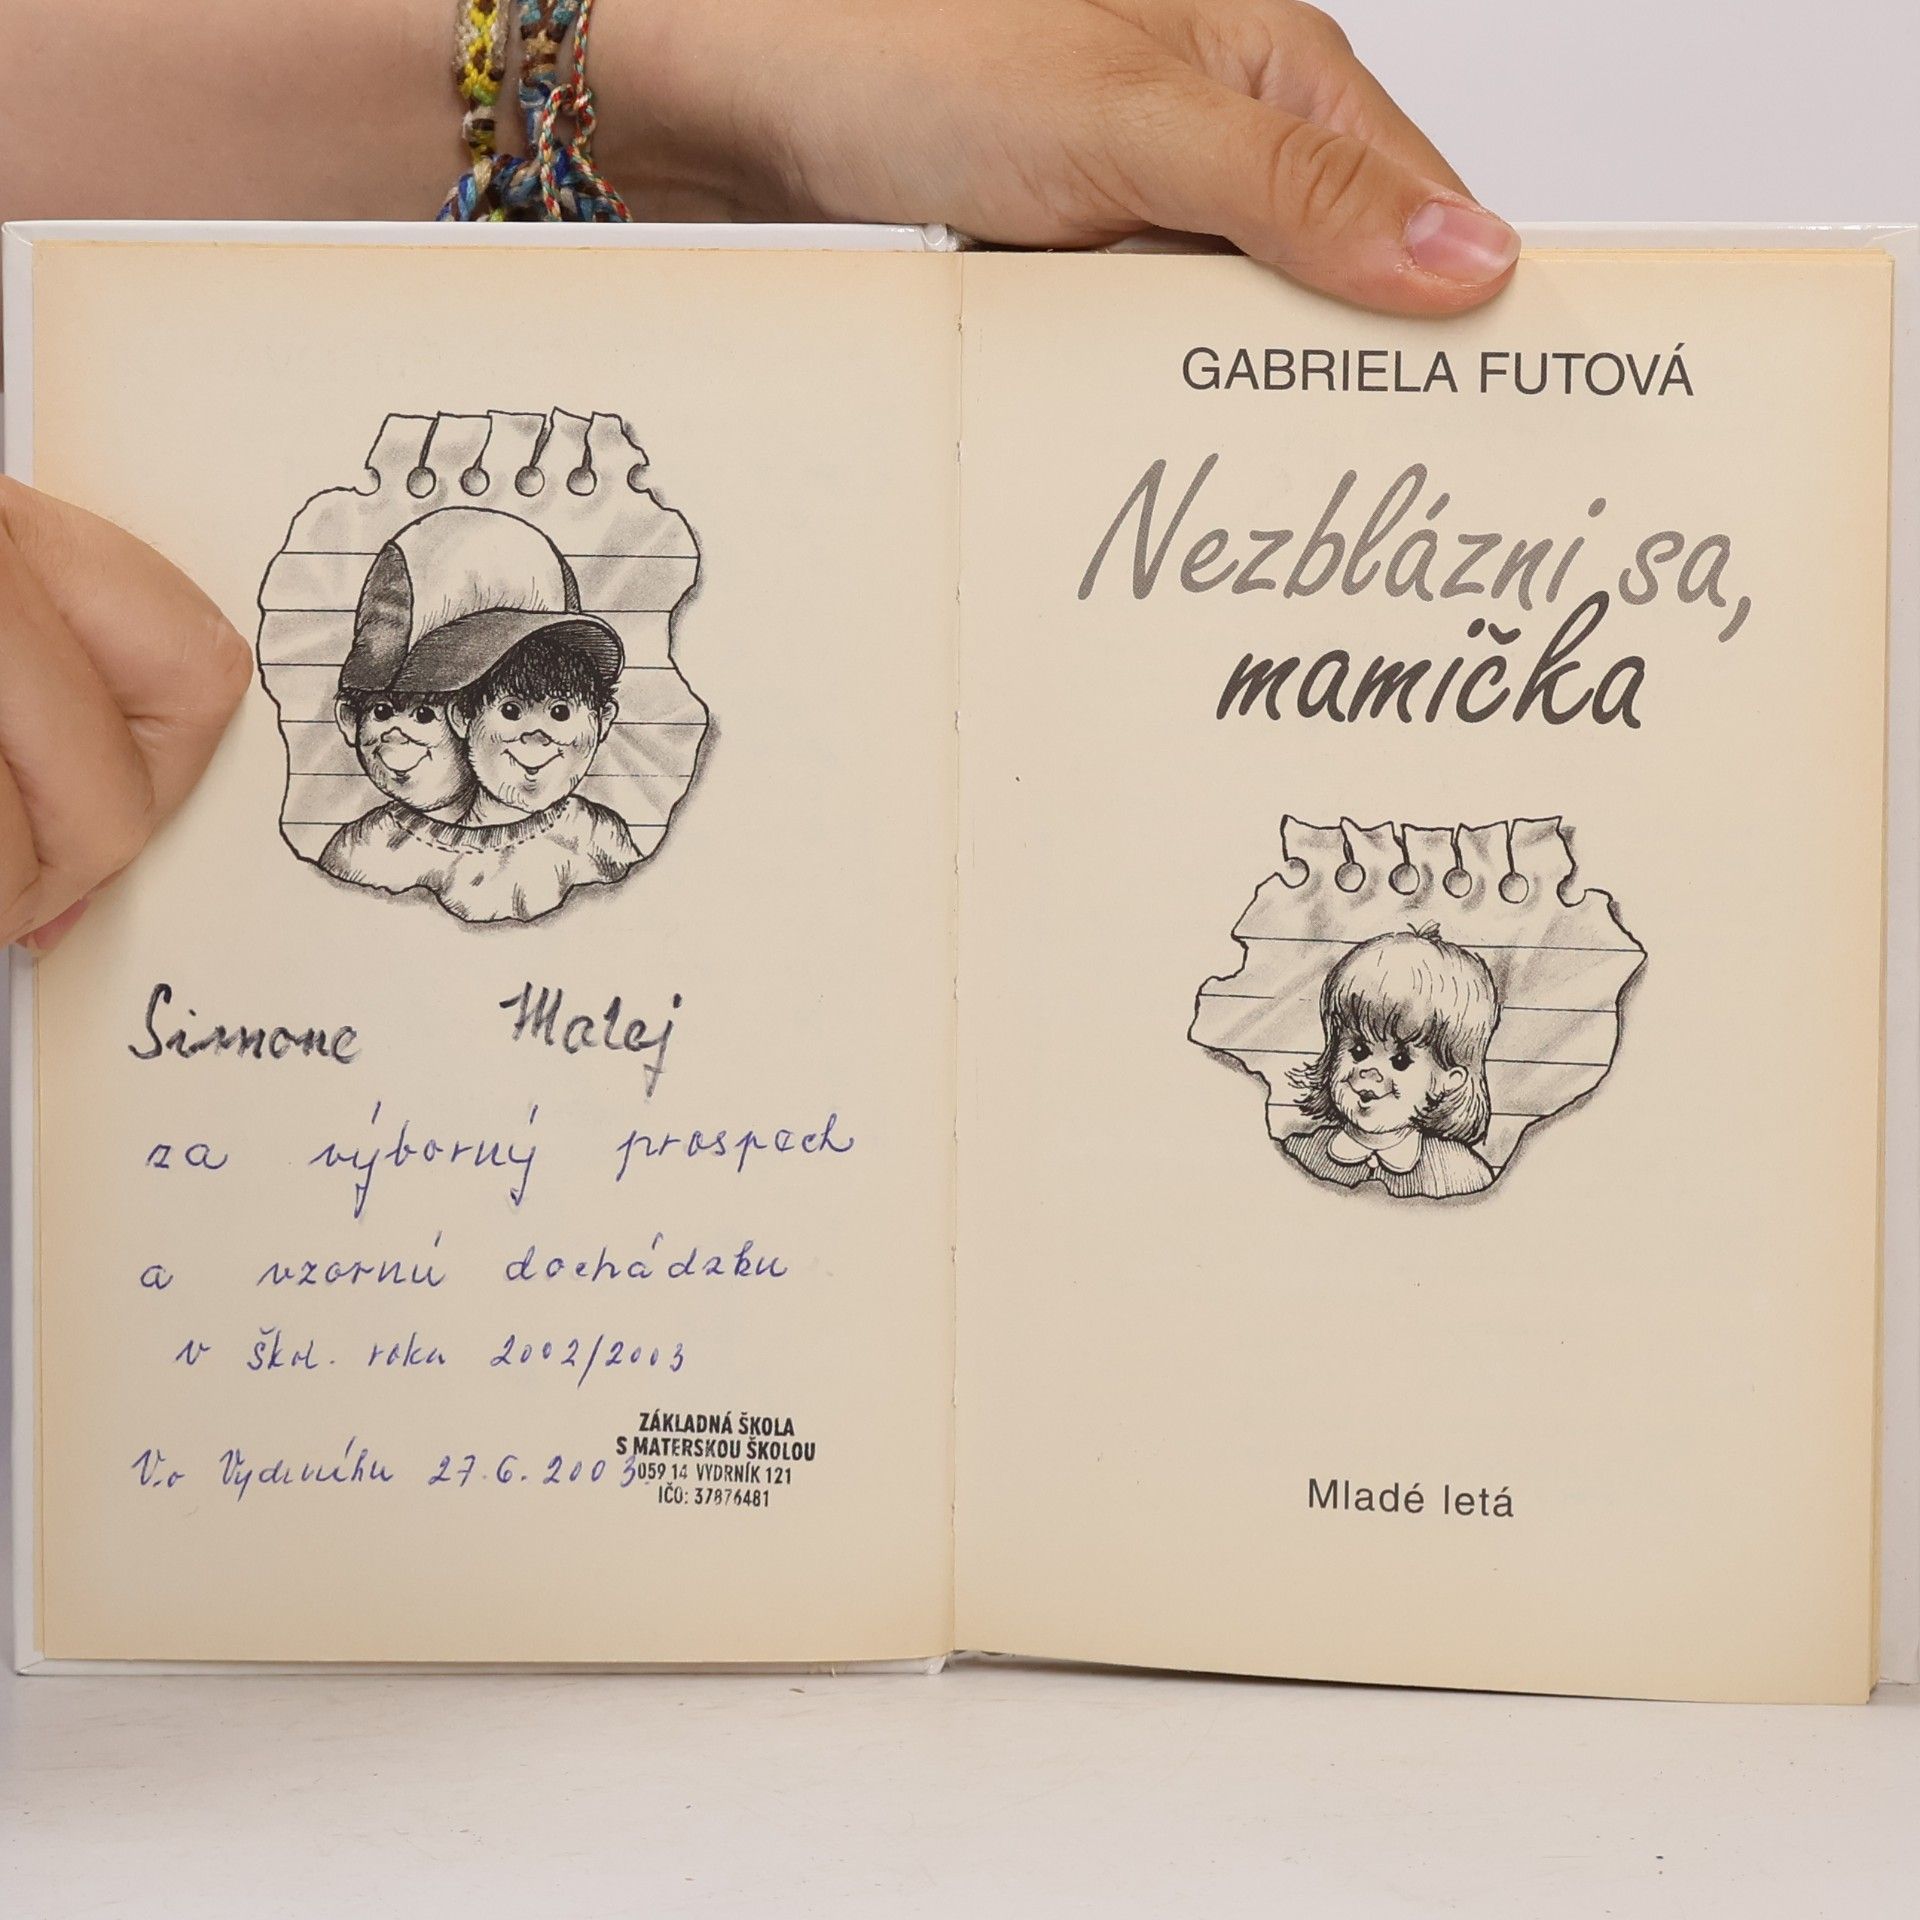 Simone Matej
za výborný prospech
a vzornú dochádzku
v škol. roku 2002/2003
Vo Vydrníku 27.6.2003
ZÁKLADNÁ ŠKOLA
S MATERSKOU ŠKOLOU
059 14 VYDRNÍK 121
IČO: 37876481
GABRIELA FUTOVÁ
Nezblázni sa,
mamička
Mladé letá